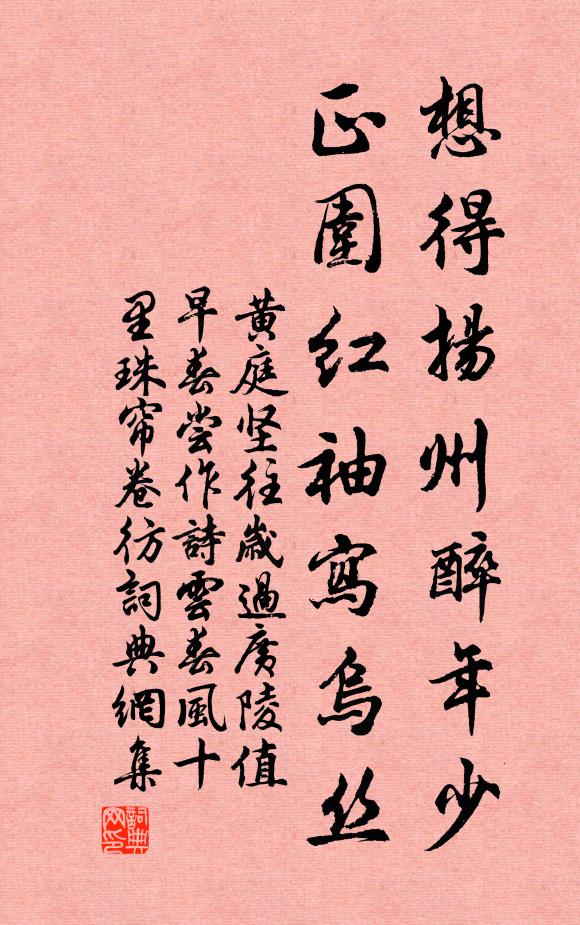 想得揚州醉年少
正圍紅袖寫烏丝
黄庭坚往歲過廣陵值
早春尝作詩雲春風十
里珠帘卷彷詞典網集
詞典
网印